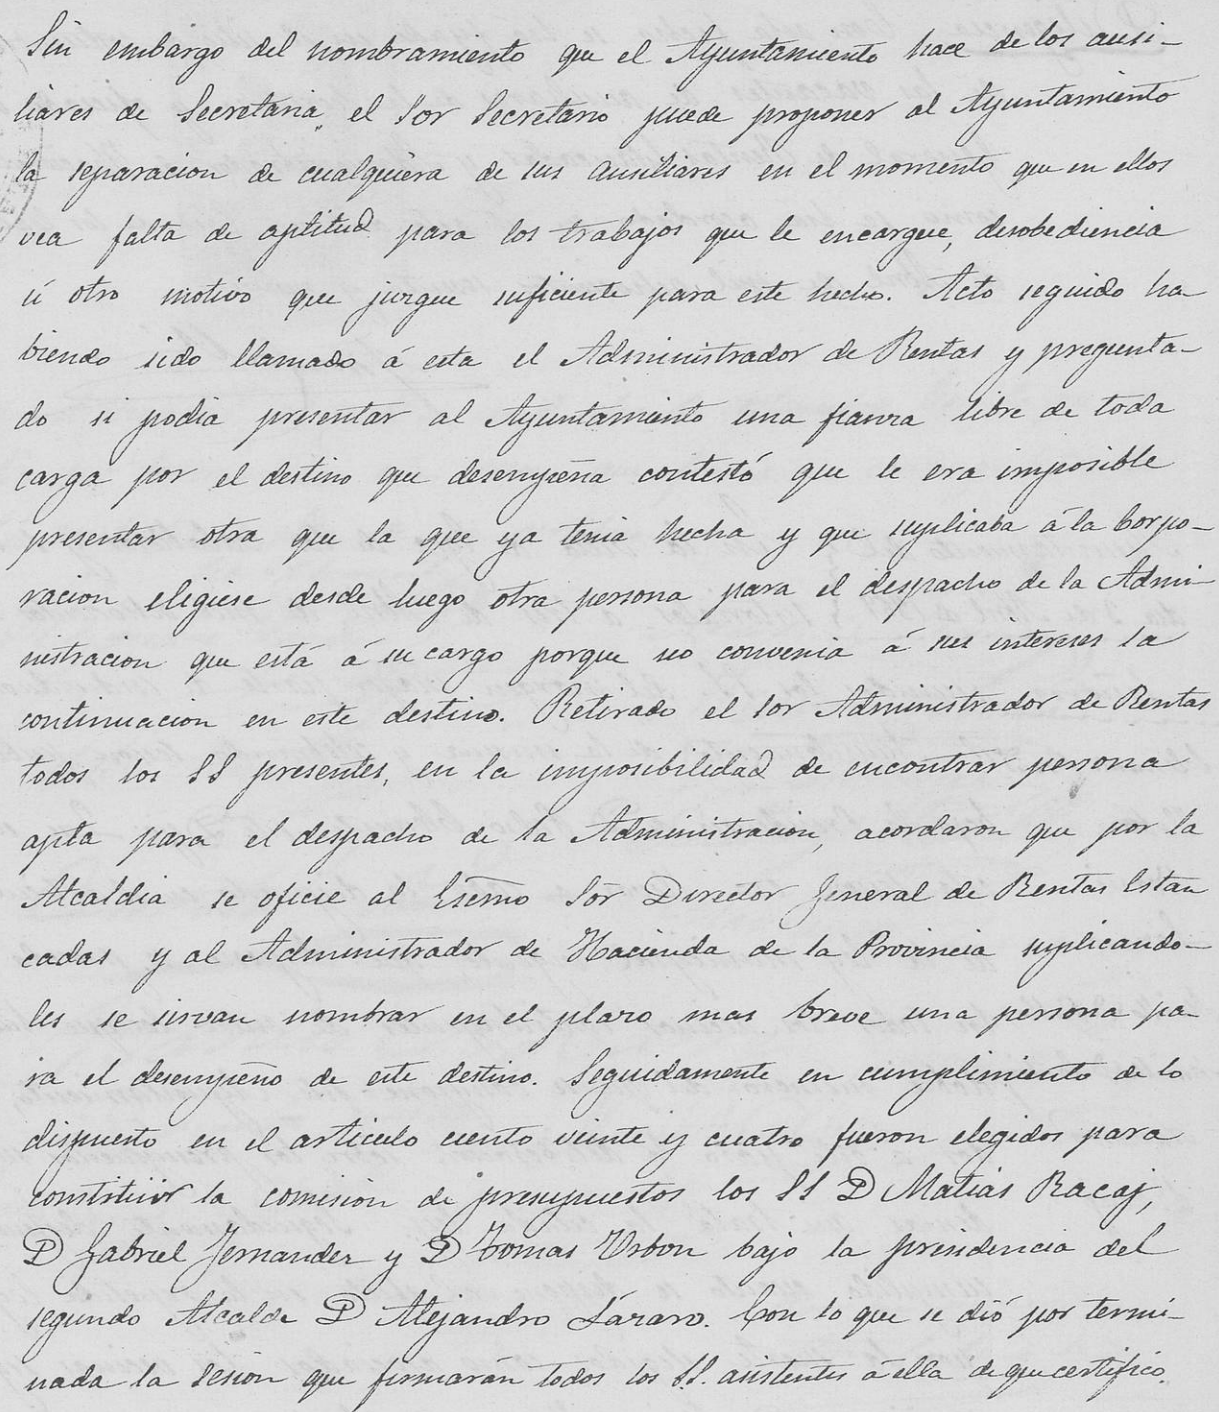 Sin embargo del nombramiento que el Ayuntamiento hace de los ausi-
liares de Secretaria, el Sor Secretario puede proponer al Ayuntamiento
la separacion de cualquiera de sus ausiliares en el momento que en ellos
vea falta de aptitud para los trabajos que le encargue, desobediencia
ú otro motivo que juzgue suficiente para este hecho. Acto seguido ha-
biendo sido llamado á esta el Administrador de Rentas y pregunta-
do si podia presentar al Ayuntamiento una fianza libre de toda
carga por el destino que desempeña contestó que le era imposible
presentar otra que la que ya tenia hecha y que suplicaba á la Corpo-
racion eligiese desde luego otra persona para el despacho de la Admi-
nistracion que está á su cargo porque no convenia á sus intereses la
continuacion en este destino. Retirado el Sor Administrador de Rentas
todos los SS presentes, en la imposibilidad de encontrar persona
apta para el despacho de la Administracion, acordaron que por la
Alcaldia se oficie al Escmo Sor Director Jeneral de Rentas Estan
cadas y al Administrador de Hacienda de la Provincia suplicando-
les se sirvan nombrar en el plazo mas breve una persona pa-
ra el desempeño de este destino. Seguidamente en cumplimiento de lo
dispuesto en el articulo ciento veinte y cuatro fueron elegidos para
constituir la comision de presupuestos los SS D Matias Racaj,
D Gabriel Jernandez y D Tomas Urbon bajo la presidencia del
segundo Alcalde D Alejandro Lázaro. Con lo que se dió por termi-
nada la sesion que firmarán todos los S.S. asistentes á ella de que certifico.